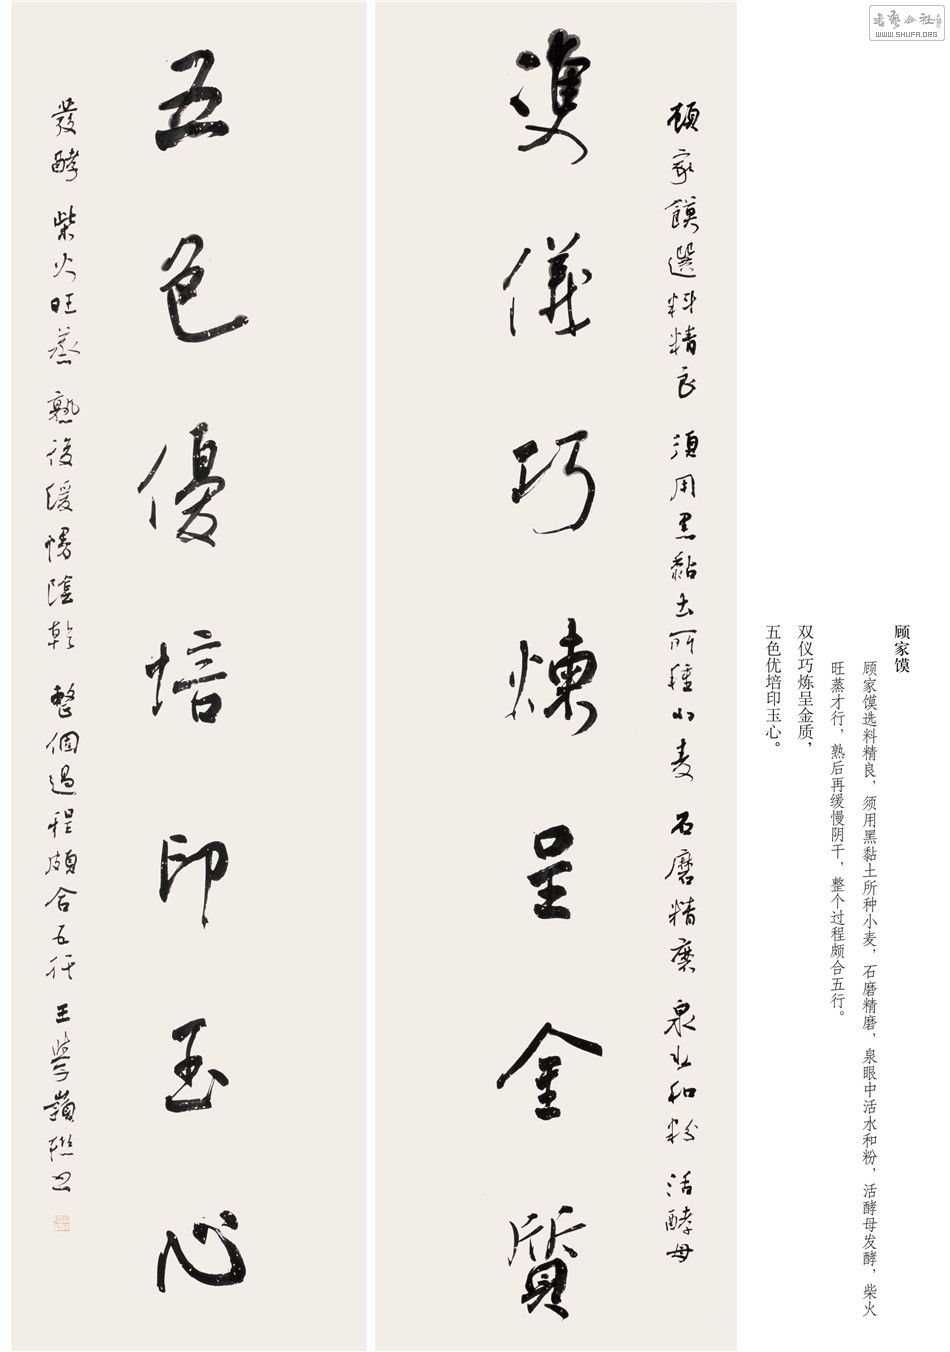 顾家馍
顾家馍选料精良，须用黑黏土所种小麦，石磨精磨，泉眼中活水和粉，活酵母发酵，柴火
旺蒸才行，熟后再缓慢阴干，整个过程颇合五行。
双仪巧炼呈金质，
五色优培印玉心。
顧家饃選料精良 須用黑黏土所種小麦 石磨精磨 泉水和粉 活酵母
雙儀巧煉呈金質
五色優培印玉心
發酵 柴火旺蒸 熟後緩慢陰乾 整個過程頗合五行 王學嶺聯書
书艺公社
WWW.SHUFA.ORG